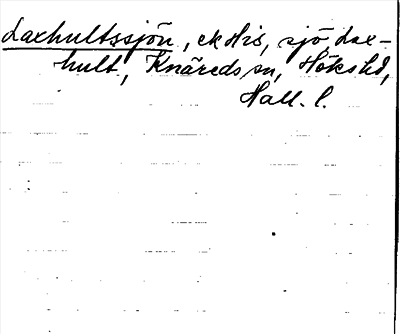 Laxhultssjön, ek His, sjö, Lax-
hult, Knäreds sn, Höks hd,
Hall. l.